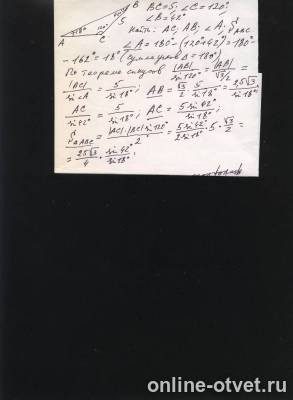 B BC=5; ∠C=120°
18° 120° 5 ∠B=42°
A C Найти: AC, AB, ∠A, S ABC
∠A=180°-(120°+42°)=180°-
-162=18° (сумма углов Δ=180°)
По теореме синусов |AB|/sin120° = |AB|/(√3/2) =
|BC|/sin∠A = 5/sin18°; AB = √3/2 · 5/sin18° = 2,5√3/sin18°
AC/sin42° = 5/sin18°; AC = 5sin42°/sin18°;
S ΔABC = |AC|·|BC| sin120°/2 = 5sin42°/2sin18° · 5 · √3/2 =
= 25√3/4 · sin42°/sin18°;
online-otvet.ru